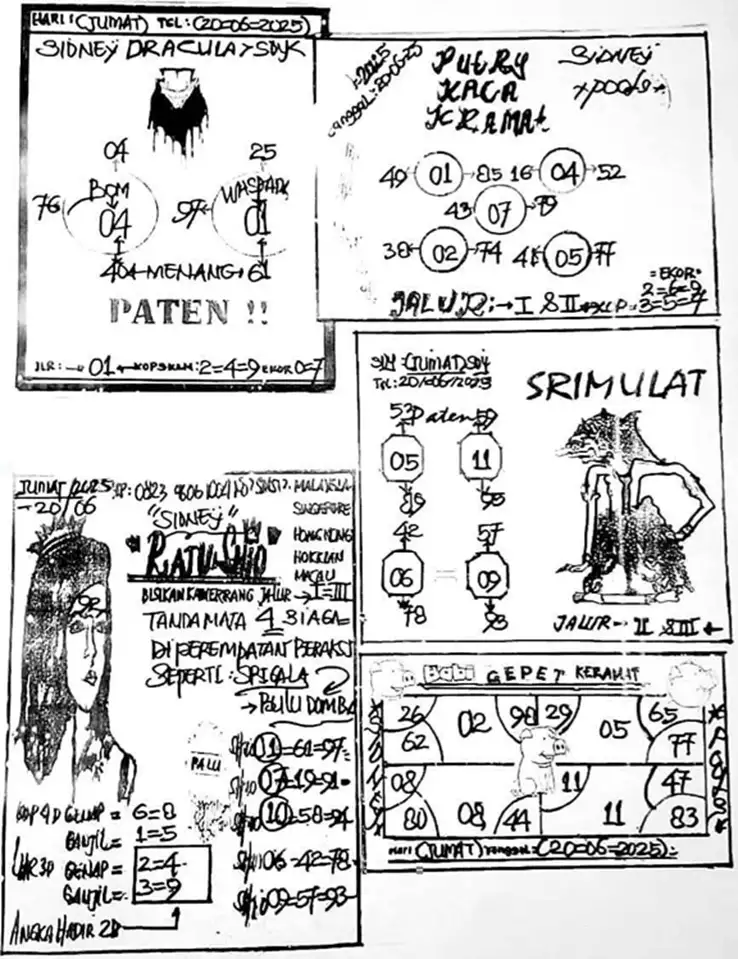 HARI:(JUMAT) TGL:(20=06=2025)
SIDNEY DRACULA>SDYK
04 25
BOM WASPADA
76 04 97 01
404 MENANG 61
PATEN !!
JLR: → 01 ← KOP3KAM: 2=4=9 EKOR 0=7
2025
Tanggal: 20-06-25
PUTRY
KACA
KRAMAT
SIDNEY
POOLS
49 01 85 16 04 52
43 07 79
38 02 74 41 05 77
=EKOR=
2=6=9
JALUR: → I & II KOP=3=5=7
(JUMAT) SDY
TGL: 20/06/2025
SRIMULAT
53 Paten 59
05 11
42 57
06 = 09
78 93
JALUR → II & III ←
JUMAT/2025
→ 20/06
MALAYSIA
SINGAPORE
HONGKONG
HOKKIAN
MACAU
"SIDNEY"
"RATU SHIO"
JALUR → I=III
TANDA MATA 4
DI PEREMPATAN
SEPERTI: SRIGALA
→ PALU DOMBA
PALU
Shio 01=61=97
Shio 07=19=91
Shio 10=58=94
Shio 06=42=78
Shio 09=57=93
KOP 4D GENAP = 6=8
GANJIL = 1=5
GENAP = 2=4
GANJIL = 3=9
ANGKA HADIR 2D
Babi GEPET KERAMAT
26 02 98 29 05 65
62 77
08 11 47
80 08 44 11 83
HARI (JUMAT) TANGGAL = (20=06=2025)